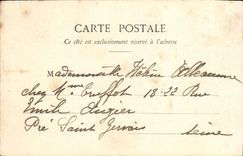 CARTE POSTALE
Ce côté est exclusivement réservé à l'adresse
Mademoiselle Hélène
chez Mme Truffot 18-22 Rue
Emile Augier
Pré Saint Gervais
Seine